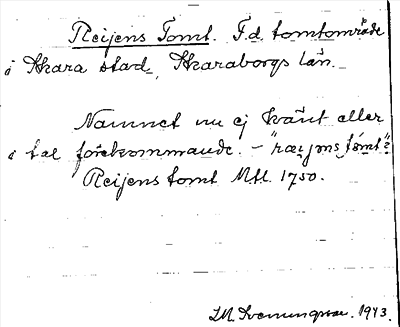 Reijens Tomt. F.d. tomtområde
i Skara stad, Skaraborgs län.
Namnet nu ej känt eller
i tal förekommande. -
Reijens tomt Mtl. 1750.
1943.